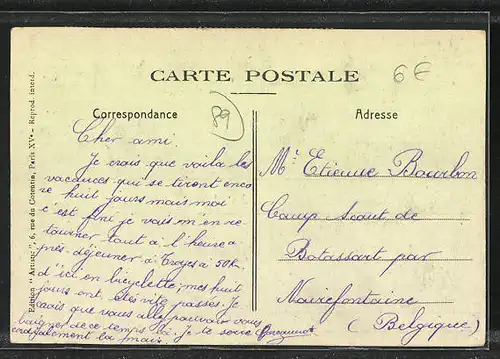 CARTE POSTALE
6€
Correspondance
89
Adresse
Cher ami.
Je crois que voila les
vacances qui se tirent enco
re huit jours mais moi
c'est fini je vais m'en re
tourner tout à l'heure a
près déjeuner à Troyes à 50k.
d'ici en bicyclette, mes huit
jours ont étés vite passés. Je
crois que vous allez pouvoir vous
baigner de ce temps là. Je te serre
cordialement la main.
Mr. Etienne Bourbon
Camp Scout de
Botassart par
Noirefontaine
(Belgique)
Edition "Artistic", 6, rue du Cotentin, Paris XVe - Reprod. interd.